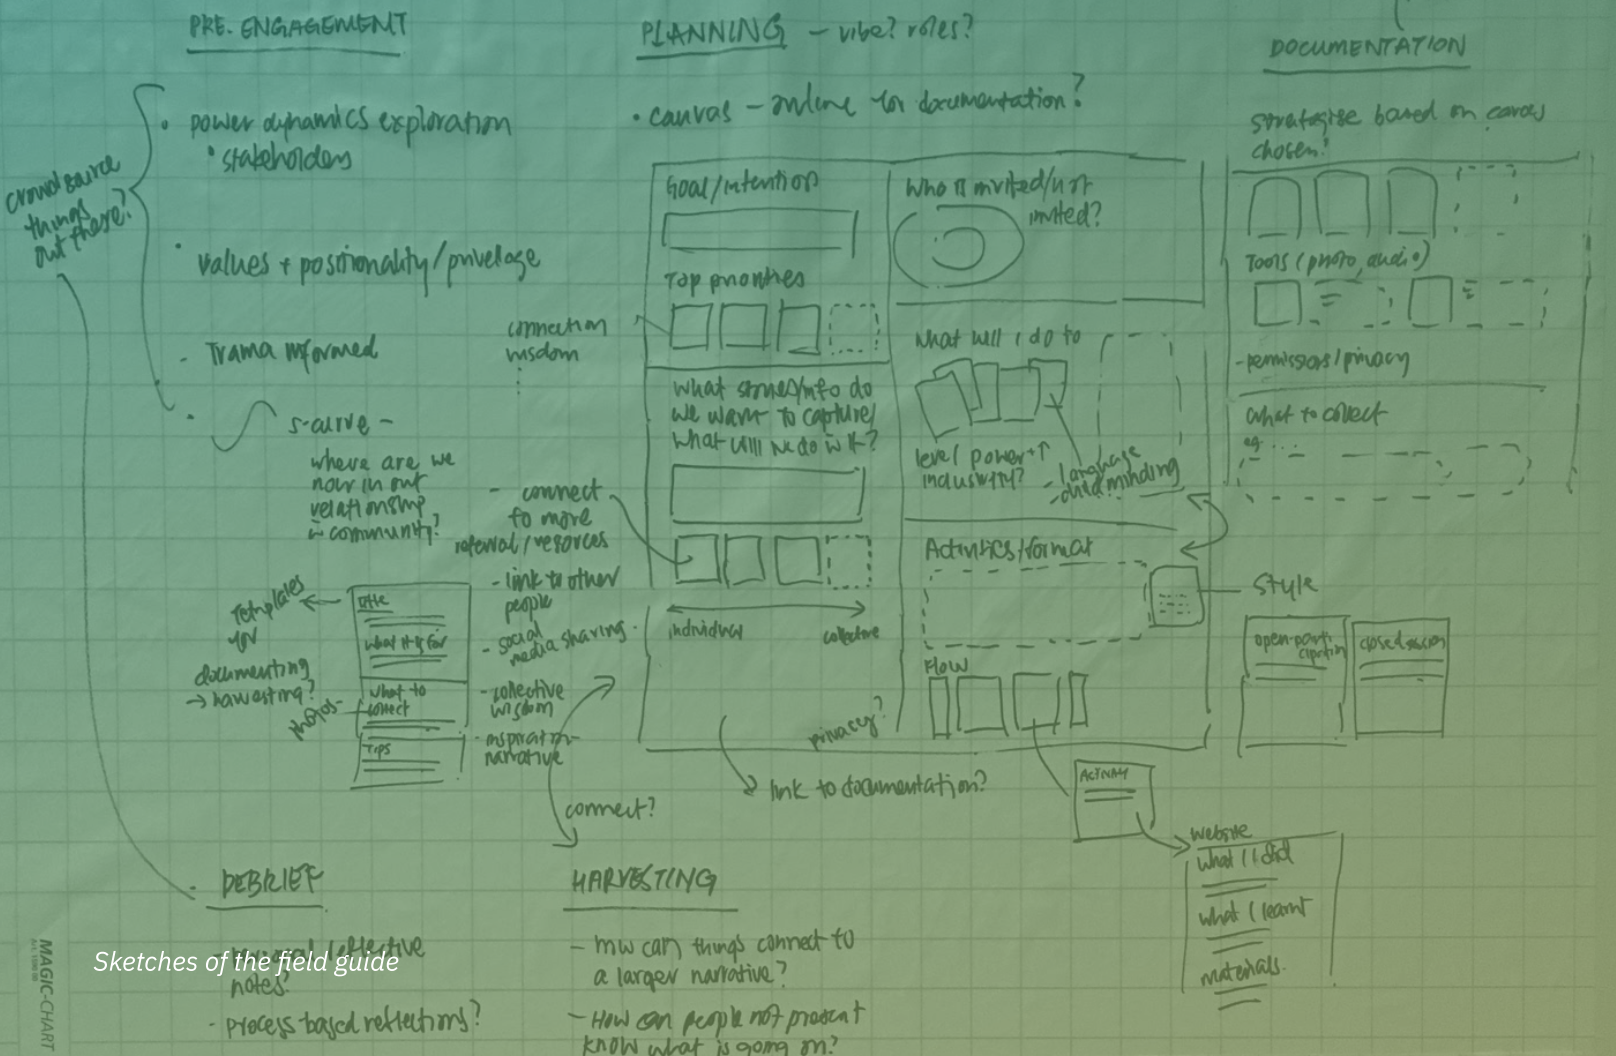 PRE. ENGAGEMENT
• power dynamics exploration
• stakeholders
crowdsource
things
out there?
• values + positionality/privelage
- Trama informed
• s-curve -
where are we
now in our
relationship
in community?
Templates
for
documenting
→ harvesting?
photos-
title
what it is for
what to
collect
Tips
DEBRIEF
notes?
- process based reflections?
PLANNING - vibe? roles?
• canvas - online for documentation?
Goal/intention
Top priorities
connection
wisdom
What stories/info do
we want to capture/
what will we do w it?
- connect
to more
referral/resorces
- link to other
people
- social
media sharing.
- collective
wisdom
- inspiration
narrative
individual
collective
connect?
link to documentation?
privacy?
Who is invited/not
invited?
What will I do to
level power +↑
inclusivity?
- language
- child minding
Activities/format
Flow
Style
open-parti
cipation
closed session
Activity
website
what I did
what I learnt
materials.
DOCUMENTATION
strategise based on canvas
chosen!
Tools (photo, audio)
- permissions/privacy
what to collect
eg.
HARVESTING
- How can things connect to
a larger narrative?
- How can people not present
know what is going on?
Sketches of the field guide
MAGIC-CHART